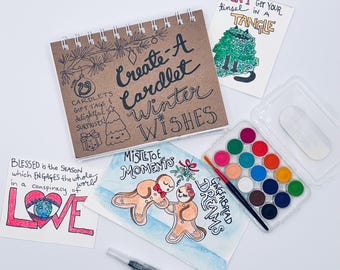 DON'T GET YOUR
tinsel in a
TANGLE
Create A
Cardlet
Winter
WISHES
CARDLETS
GIFT TAGS &
delightful
SURPRISES
BLESSED is the SEASON
which ENGAGES the whole
world
in a conspiracy of
LOVE
MISTLETOE
MOMENTS
GINGERBREAD
DREAMS